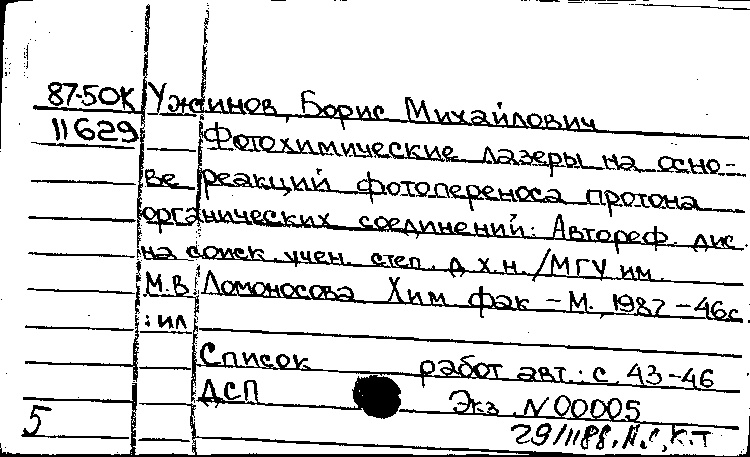 87-50К Ужинов, Борис Михайлович
11629 Фотохимические лазеры на осно-
ве реакций фотопереноса протона
органических соединений: Автореф. дис.
на соиск. учен. степ. д.х.н./МГУ им.
М.В Ломоносова Хим фак - М., 1987 - 46с.
: ил
Список работ авт.: с. 43-46
ДСП Экз. N 00005
5 29/1188,